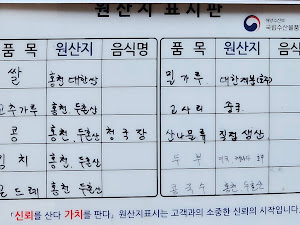 원산지 표시판
국립수산물품
품 목 원산지 음식명 품 목 원산지 음식명
쌀 홍천 대한산 밀가루
고추가루 홍천, 두촌산 고사리 중국
콩 홍천, 두촌산 청국장 산나물류 직접 생산
김치 홍천, 두촌산 두부
곤드레 홍천 두촌산 콩국수 홍천 두촌산
「신뢰를 산다 가치를 판다」 원산지표시는 고객과의 소중한 신뢰의 시작입니다.